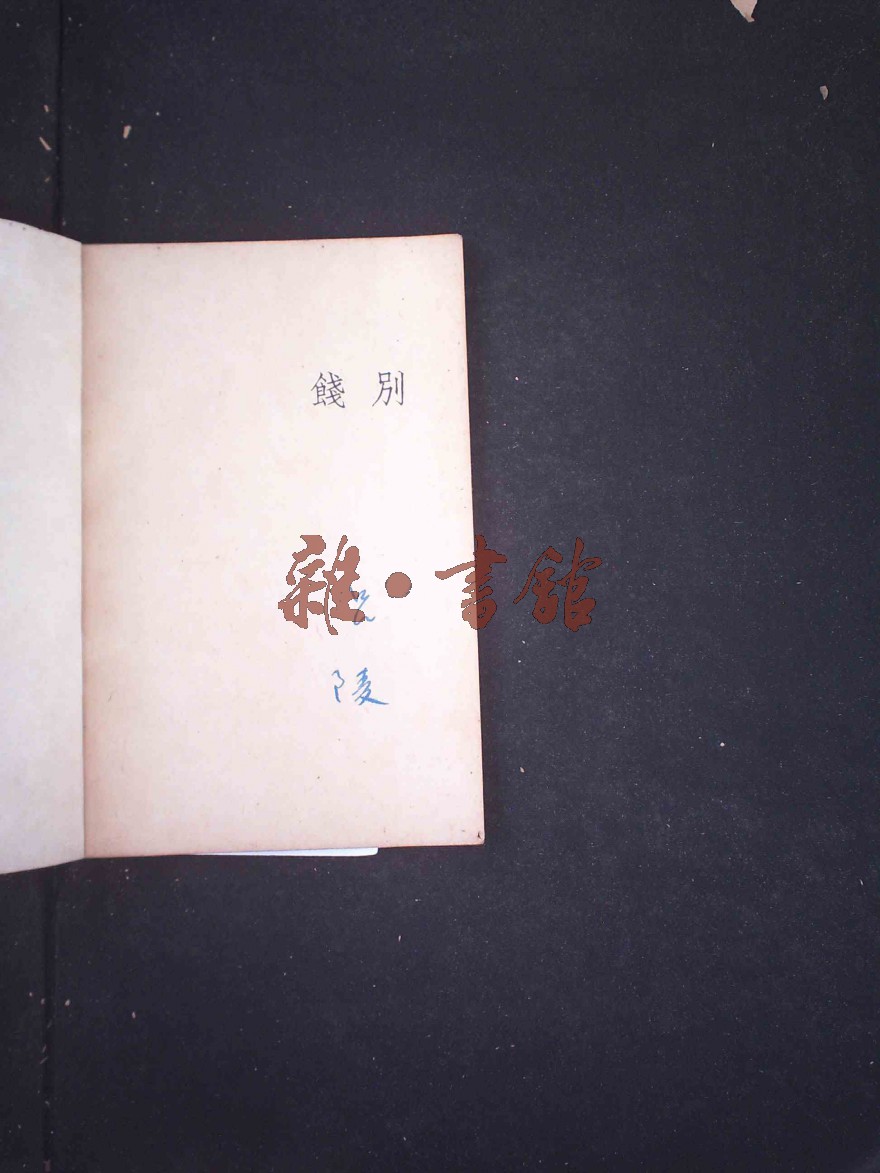 餞別
雜·書館
陵